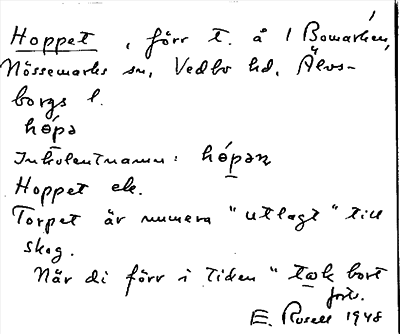 Hoppet, förr t. å 1 Bomarken,
Nössemarks sn, Vedbo hd, Älvs-
borgs l.
hɵ́pə
Inkolentnamn: hɵ́pən
Hoppet ek.
Torpet är numera "utlagt" till
skog.
När di förr i tiden "tɷk bort
E. Rosell 1948